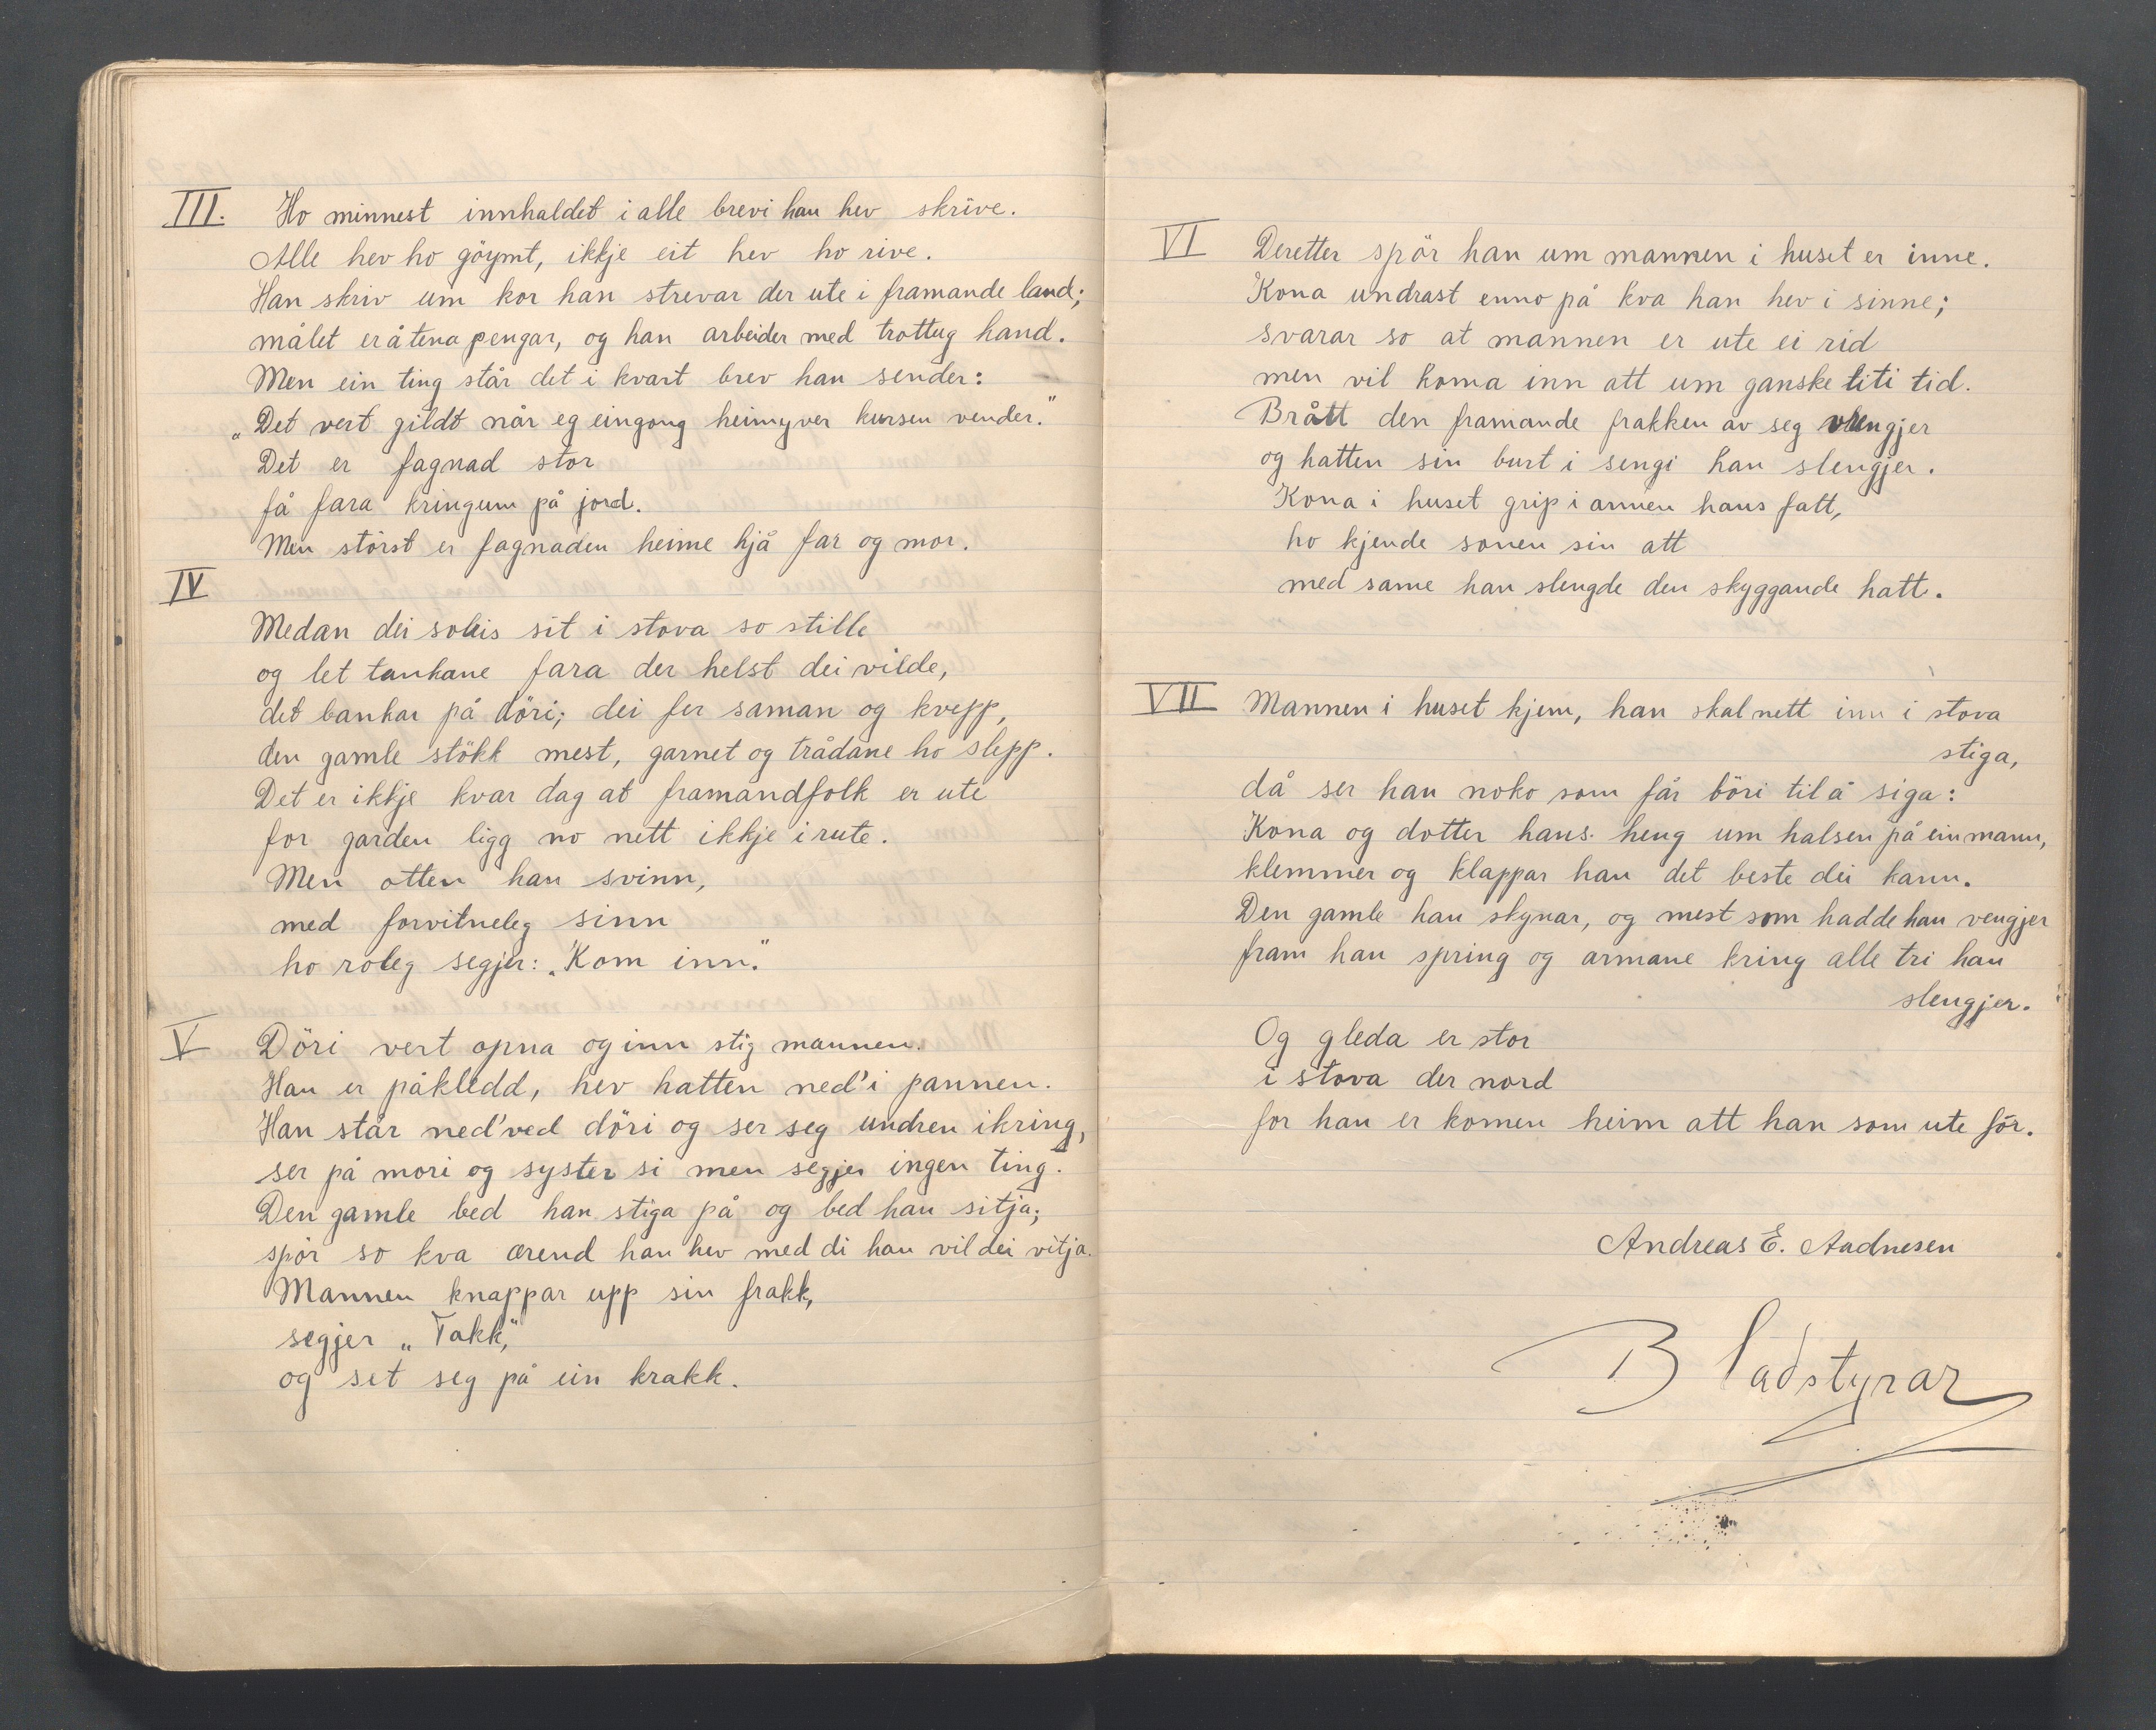 III. Ho minnest innhaldet i alle brevi han hev skrive.
Alle hev ho göymt, ikkje eit hev ho rive.
Han skriv um kor han strevar der ute i framande land;
målet er å tena pengar, og han arbeider med trottug hand.
Men ein ting står det i kvart brev han sender:
„Det vert gildt når eg eingong heimyver kursen vender."
Det er fagnad stor
få fara kringum på jord.
Men störst er fagnaden heime hjå far og mor.
IV
Medan dei soleis sit i stova so stille
og let tankane fara der helst dei vilde,
det bankar på döri; dei fer saman og kvepp,
den gamle stökk mest, garnet og trådane ho slepp.
Det er ikkje kvar dag at framandfolk er ute
for garden ligg no nett ikkje i rute.
Men otten han svinn,
med forvitneleg sinn
ho roleg segjer: „Kom inn."
V Döri vert opna og inn stig mannen.
Han er påkledd, hev hatten ned'i pannen.
Han står ned'ved döri og ser seg undren ikring,
ser på mori og syster si men segjer ingen ting.
Den gamle bed han stiga på og bed han sitja;
spör so kva ærend han hev med di han vil dei vitja.
Mannen knappar upp sin frakk,
segjer „Takk,"
og set seg på ein krakk.
VI Deretter spör han um mannen i huset er inne.
Kona undrast enno på kva han hev i sinne;
svarar so at mannen er ute ei rid
men vil koma inn att um ganske liti tid.
Brått den framande frakken av seg vrengjer
og hatten sin burt i sengi han slengjer.
Kona i huset grip i armen hans fatt,
ho kjende sonen sin att
med same han slengde den skyggande hatt.
VII Mannen i huset kjem, han skal nett inn i stova
stiga,
då ser han noko som får böri til å siga:
Kona og dotter hans heng um halsen på ein mann,
klemmer og klappar han det beste dei kann.
Den gamle han skynar, og mest som hadde han vengjer
fram han spring og armane kring alle tri han
slengjer.
Og gleda er stor
i stova der nord
for han er komen heim att han som ute fór.
Andreas E. Aadnesen
Bladstyrar